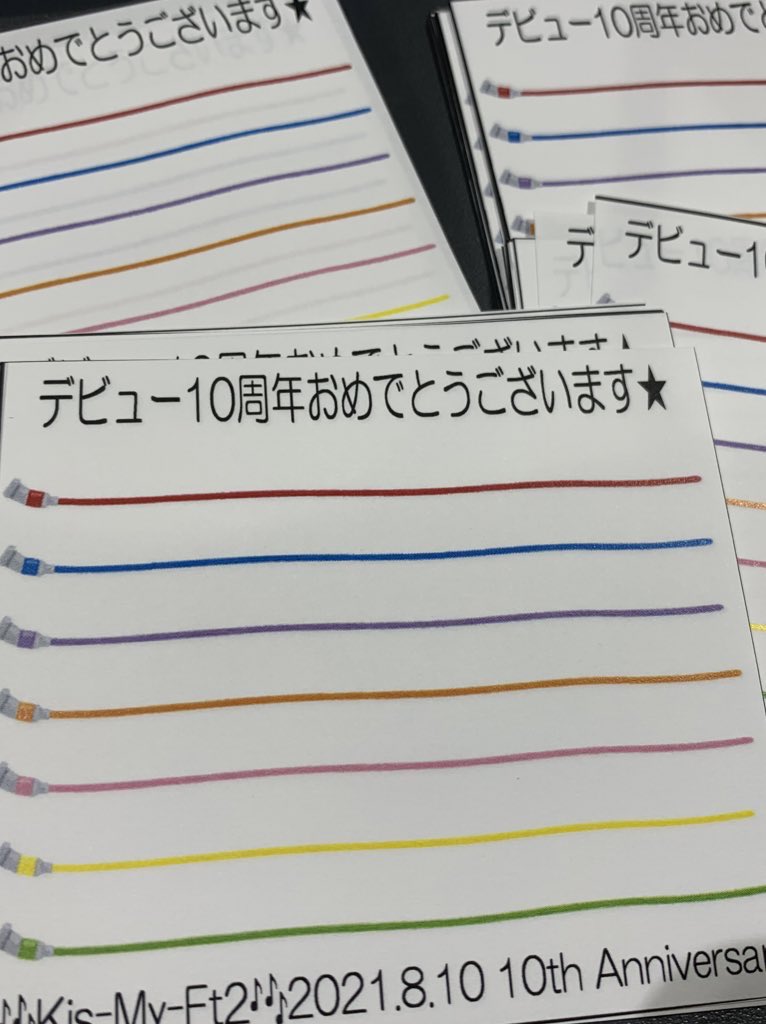 おめでとうございます★
デビュー10周年おめで
デ
デビュー1
デビュー10周年おめでとうございます★
♪♪Kis-My-Ft2♪♪2021.8.10 10th Anniversar